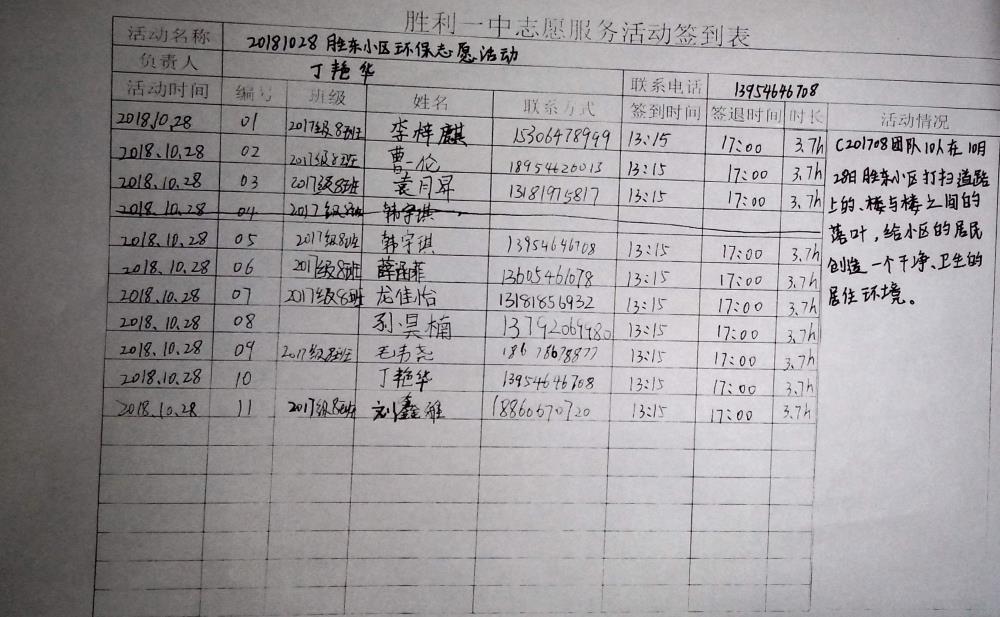 胜利一中志愿服务活动签到表
活动名称 20181028胜东小区环保志愿活动
负责人 丁艳华 联系电话 13954646708
活动时间 编号 班级 姓名 联系方式 签到时间 签退时间 时长 活动情况
2018.10.28 01 2017级8班 李梓麒 15306478999 13:15 17:00 3.7h
2018.10.28 02 2017级8班 曹一伦 18954620013 13:15 17:00 3.7h
2018.10.28 03 2017级8班 袁月昇 13181975817 13:15 17:00 3.7h
2018.10.28 04 2017级8班 韩宇琪
2018.10.28 05 2017级8班 韩宇琪 13954646708 13:15 17:00 3.7h
2018.10.28 06 2017级8班 薛涵菲 13605461678 13:15 17:00 3.7h
2018.10.28 07 2017级8班 龙佳怡 13181856932 13:15 17:00 3.7h
2018.10.28 08 孙昊楠 13792069980 13:15 17:00 3.7h
2018.10.28 09 2017级8班 毛韦尧 13:15 17:00 3.7h
2018.10.28 10 丁艳华 13954646708 13:15 17:00 3.7h
2018.10.28 11 2017级8班 刘鑫雄 18860570720 13:15 17:00 3.7h
C201708团队10人在10月
28日胜东小区打扫道路
上的、楼与楼之间的
落叶,给小区的居民
创造一个干净、卫生的
居住环境。